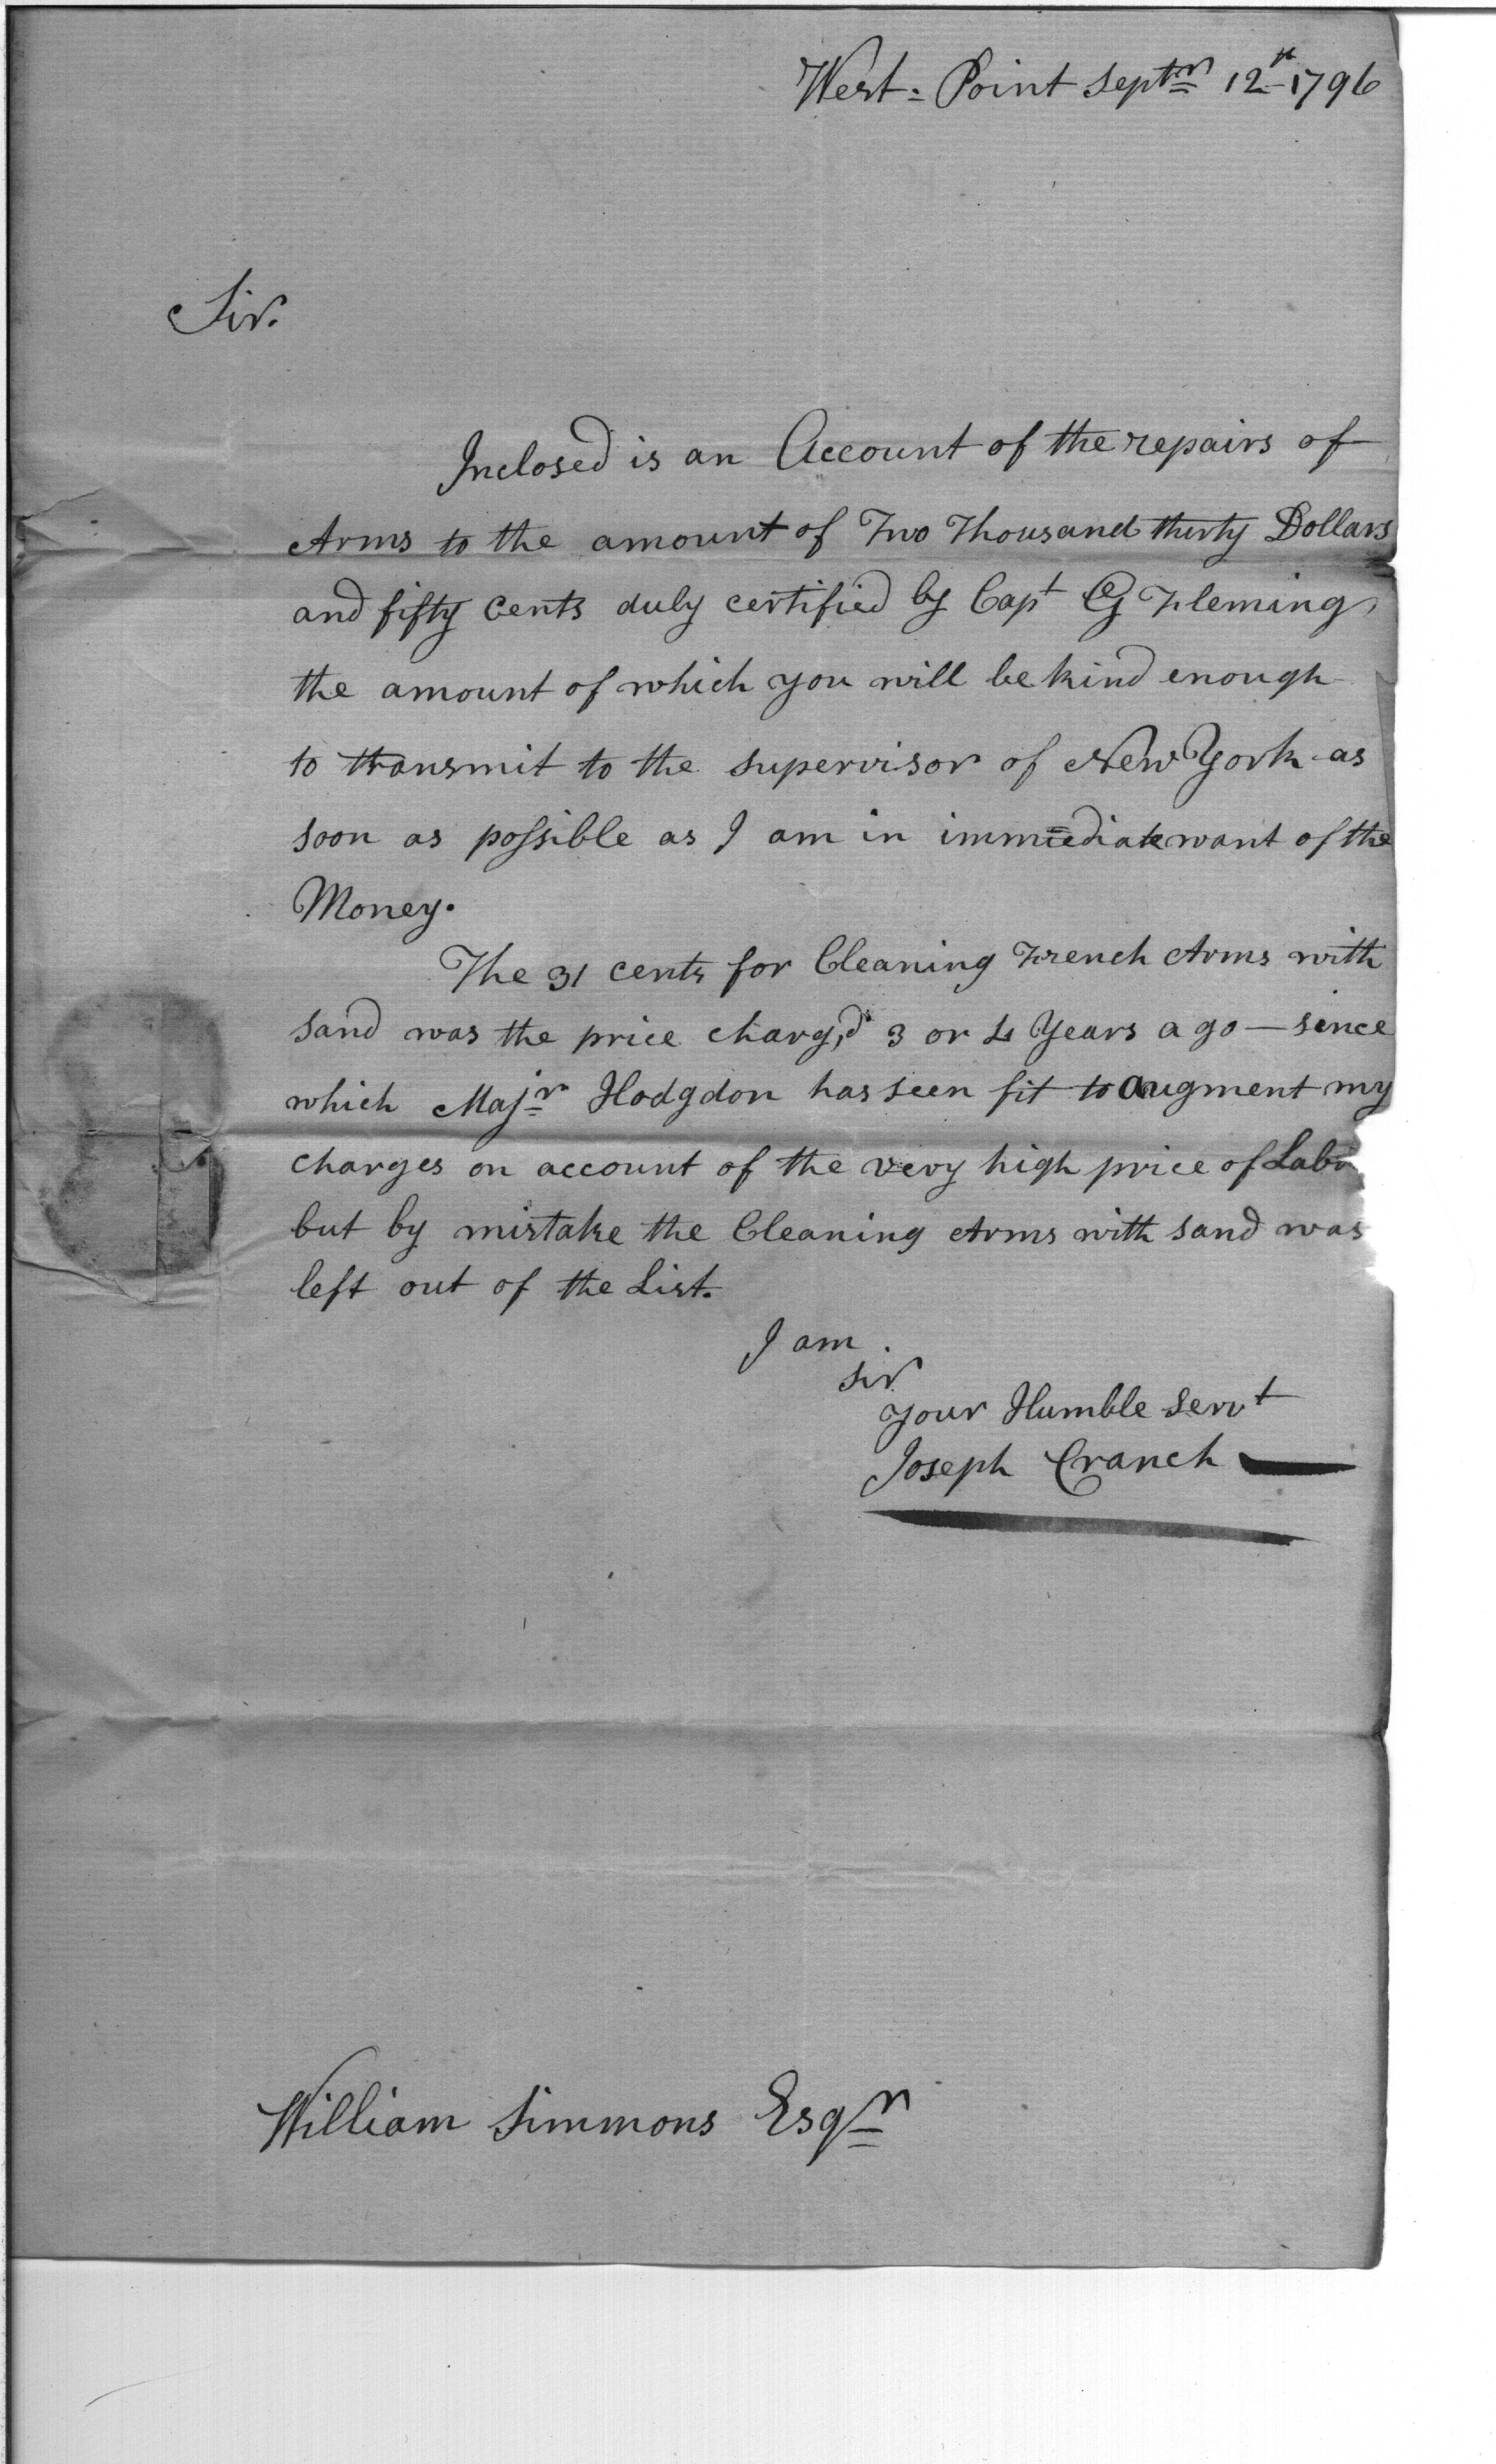 West: Point Septr 12th 1796
Sir.
Inclosed is an Account of the repairs of
Arms to the amount of Two Thousand thirty Dollars
and fifty Cents duly certified by Capt G Fleming
the amount of which you will be kind enough
to transmit to the supervisor of New York as
soon as possible as I am in immediate want of the
Money.
The 31 cents for Cleaning French Arms with
sand was the price charg,d 3 or 4 Years ago — since
which Majr Hodgdon has seen fit to augment my
charges on account of the very high price of Labo
but by mistake the Cleaning Arms with sand was
left out of the List.
I am
Sir
your Humble Servt
Joseph Cranch
William Simmons Esqr